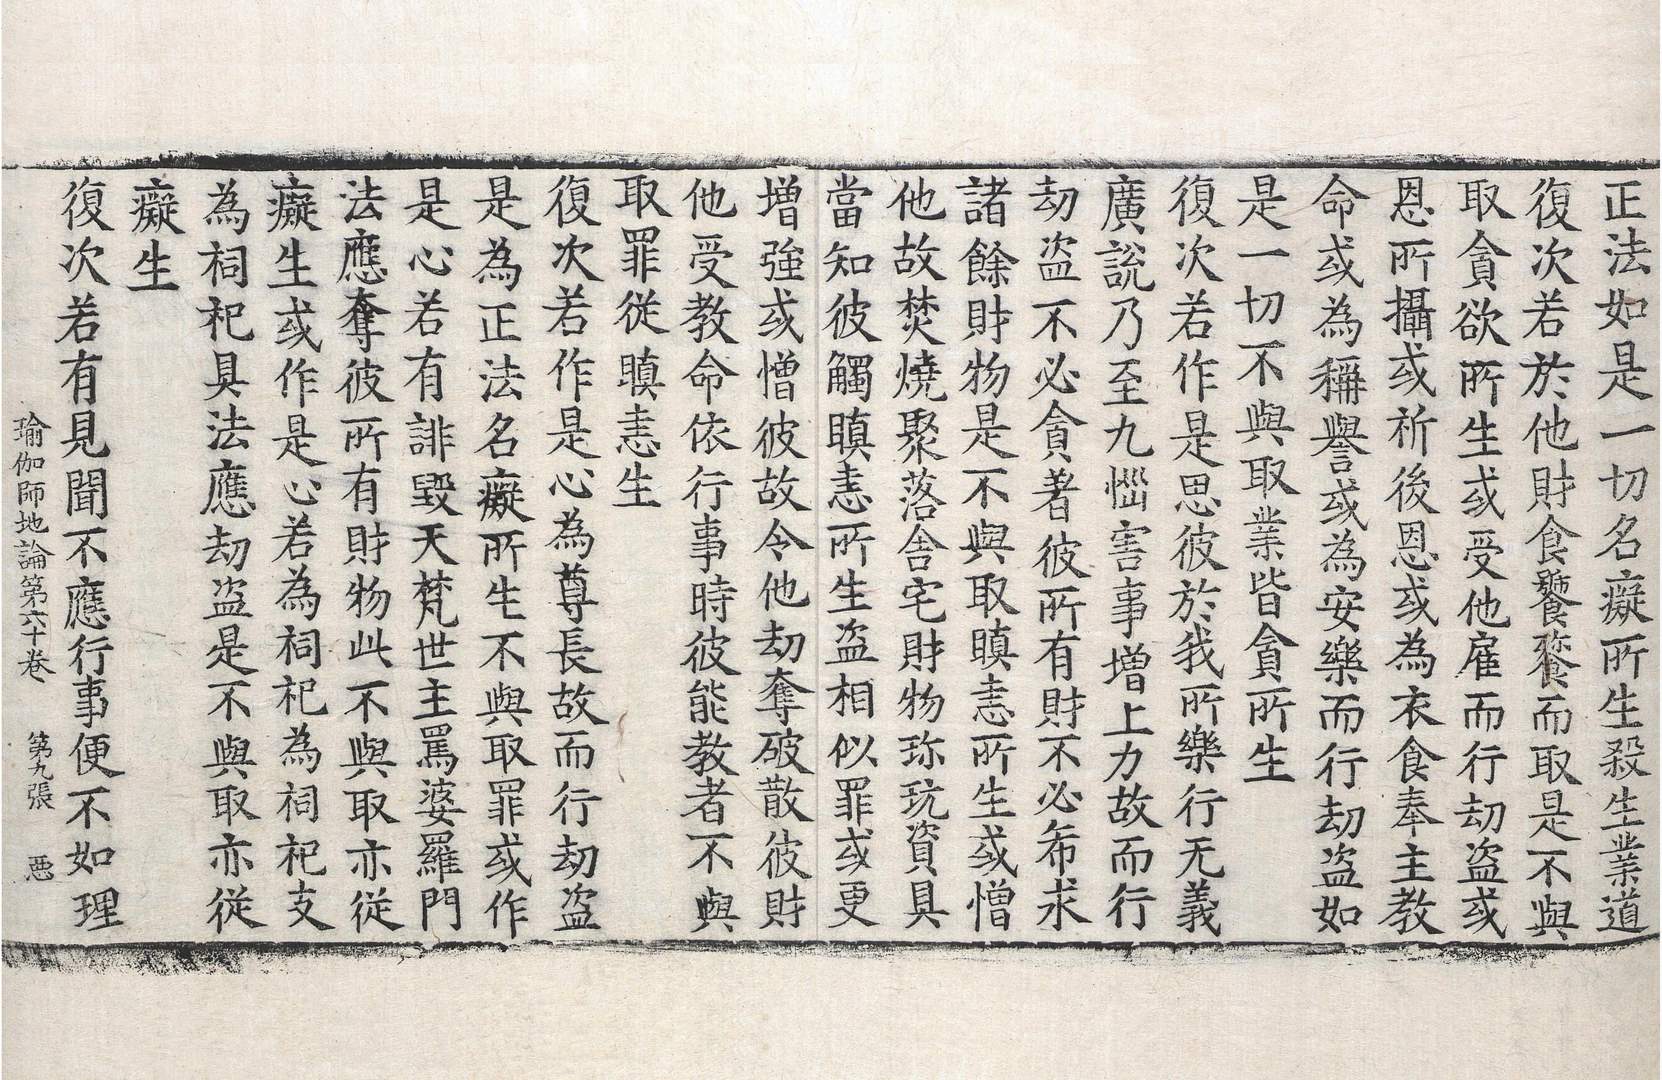 正法如是一切名癡所生殺生業道
復次若於他財食饕餮而取是不與
取貪欲所生或受他雇而行劫盗或
恩所攝或祈後恩或為衣食奉主教
命或為稱譽或為安樂而行劫盗如
是一切不與取業皆貪所生
復次若作是思彼於我所樂行无義
廣說乃至九惱害事增上力故而行
劫盗不必貪著彼所有財不必希求
諸餘財物是不與取瞋恚所生或憎
他故焚燒聚落舍宅財物珎玩資具
當知彼觸瞋恚所生盗相似罪或更
增強或憎彼故令他劫奪破散彼財
他受教命依行事時彼能教者不與
取罪從瞋恚生
復次若作是心為尊長故而行劫盗
是為正法名癡所生不與取罪或作
是心若有誹毀天梵世主罵婆羅門
法應奪彼所有財物此不與取亦從
癡生或作是心若為祠祀為祠祀支
為祠祀具法應劫盗是不與取亦從
癡生
復次若有見聞不應行事便不如理
瑜伽師地論第六十卷 第九張 惡